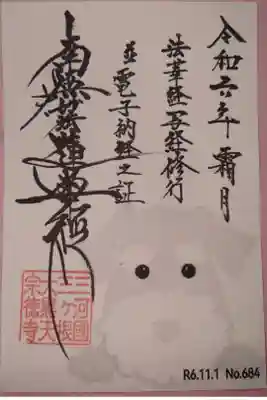 令和六年 霜月
法華経一写経修行
並電子納経之証
南無妙法蓮華経
三河國
三ヶ根
大黒天
宗徳寺
R6.11.1 No.684